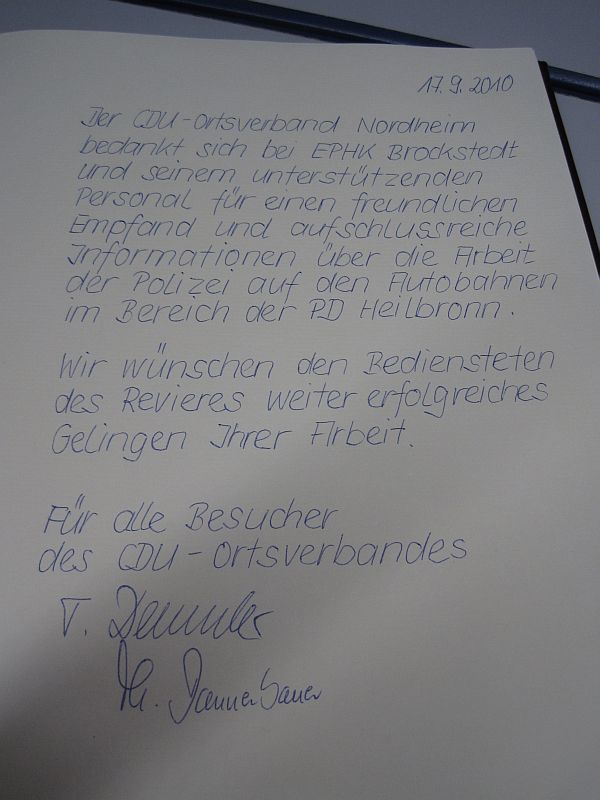 17.9.2010
Der CDU-Ortsverband Nordheim
bedankt sich bei EPHK Brockstedt
und seinem unterstützenden
Personal für einen freundlichen
Empfand und aufschlussreiche
Informationen über die Arbeit
der Polizei auf den Autobahnen
im Bereich der PD Heilbronn.
Wir wünschen den Bediensteten
des Revieres weiter erfolgreiches
Gelingen Ihrer Arbeit.
Für alle Besucher
des CDU-Ortsverbandes
V. Demmler
M. Dannerbauer